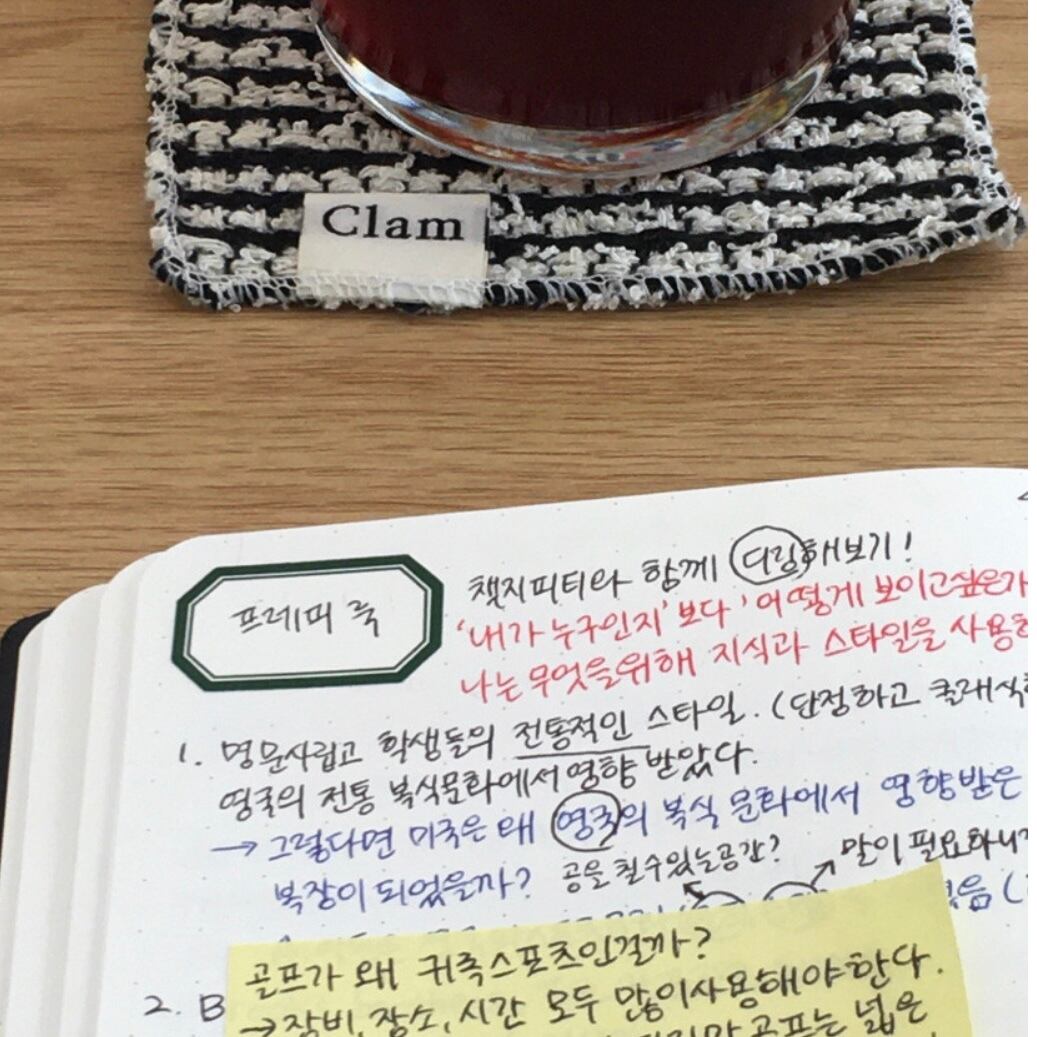 Clam
프레피 룩
챗지피티와 함께 디깅해보기!
'내가 누구인지' 보다 '어떻게 보이고싶은가
나는 무엇을위해 지식과 스타일을 사용하
1. 명문사립고 학생들의 전통적인 스타일. (단정하고 클래식한
영국의 전통 복식문화에서 영향 받았다.
→ 그렇다면 미국은 왜 영국의 복식 문화에서 영향받은
복장이 되었을까?
공을 칠수있는공간?
말이 필요하니까
골프가 왜 귀족스포츠인걸까?
→ 장비, 장소, 시간 모두 많이사용해야 한다.
골프는 넓은
2. B